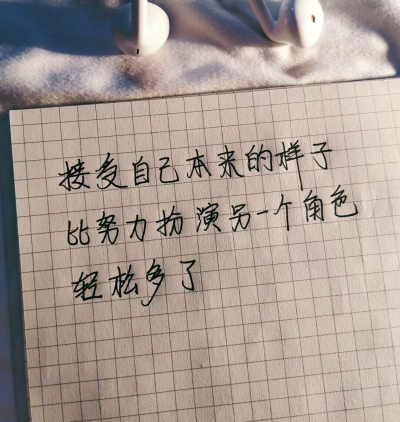 接受自己本来的样子
比努力扮演另一个角色
轻松多了